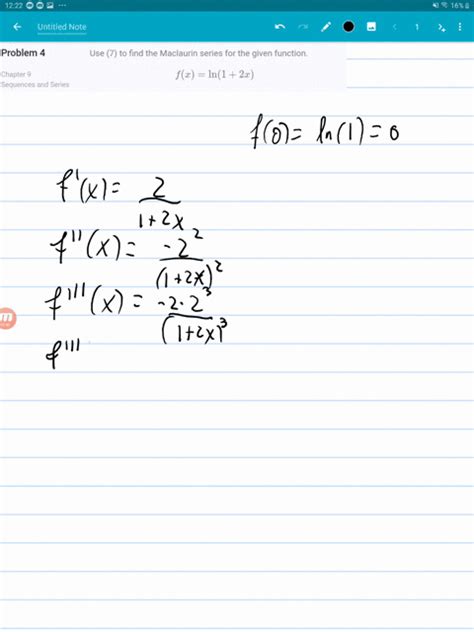 12:22
16%
Untitled Note
1
Problem 4
Use (7) to find the Maclaurin series for the given function.
Chapter 9
Sequences and Series
f(x) = ln(1 + 2x)
f(0) = ln(1) = 0
f'(x) = 2/(1+2x)
f''(x) = -2²/(1+2x)²
f'''(x) = -2·2³/(1+2x)³
f'''
m